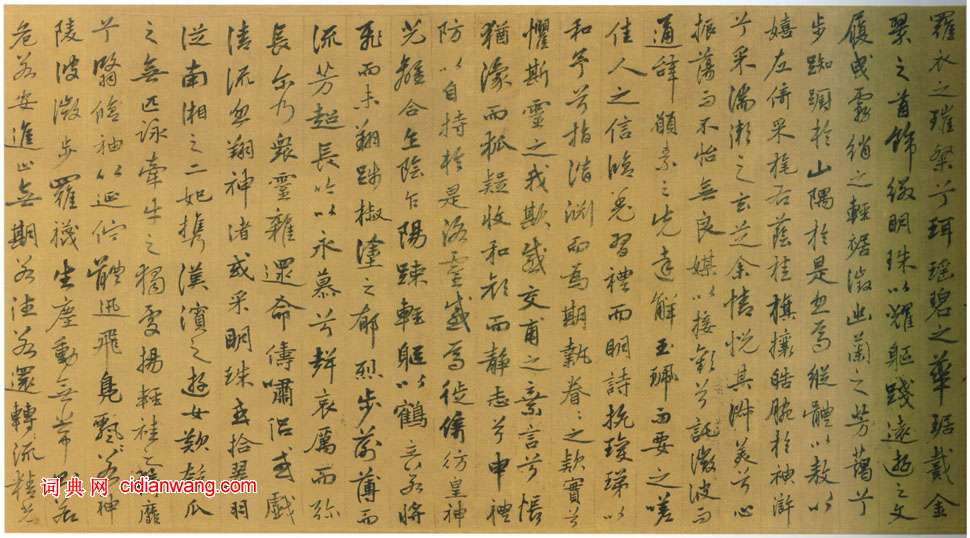 羅衣之璀粲兮珥瑤碧之華琚戴金
翠之首飾綴明珠以耀軀踐遠遊之文
履曳霧綃之輕裾微幽蘭之芳藹兮
步踟躕於山隅於是忽焉縱體以敖以
嬉左倚采旄右蔭桂旗攘皓腕於神滸
兮采湍瀨之玄芝余情悅其淑美兮心
振蕩而不怡無良媒以接歡兮託微波而
通辭願素之先達解玉珮而要之嗟
佳人之信脩羌習禮而明詩抗瓊珶以
和予兮指潛淵而為期執眷〻之款實兮
懼斯靈之我欺感交甫之棄言兮悵
猶豫而狐疑收和顏而靜志兮申禮
防以自持於是洛靈感焉徙倚彷皇神
光離合乍陰乍陽竦輕軀以鶴立若將
飛而未翔踐椒塗之郁烈步蘅薄而
流芳超長吟以永慕兮聲哀厲而彌
長爾乃眾靈雜遝命儔嘯侶或戲
清流或翔神渚或采明珠或拾翠羽
從南湘之二妃攜漢濱之遊女歎匏瓜
之無匹詠牽牛之獨處揚輕袿之猗靡
兮翳脩袖以延佇體迅飛鳧飄忽若神
陵波微步羅襪生塵動無常則若
危若安進止無期若往若還轉流精光
词典网 cidianwang.com